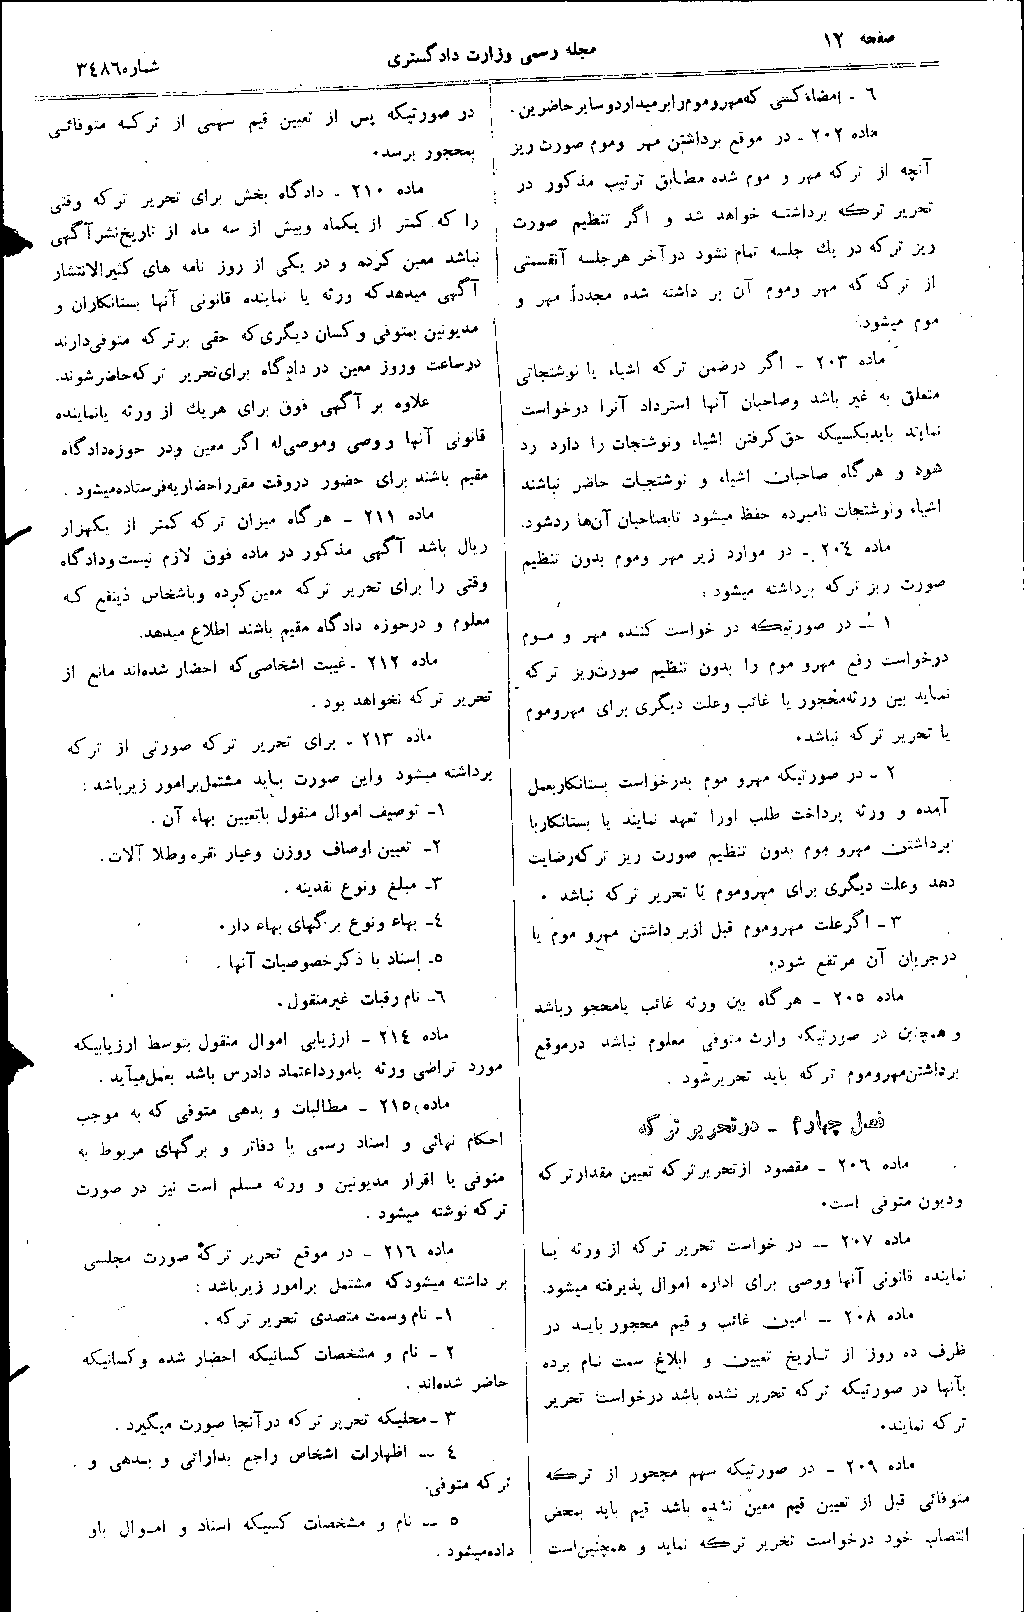 صفحه ۱۲
مجله رسمی وزارت دادگستری
شماره ۳٤۸٦
٦ - امضاء کسی که مهر و موم را بر میدارد و سایر حاضرین.
ماده ۲۰۲ - در موقع برداشتن مهر و موم صورت ریز
آنچه از ترکه مهر و موم شده مطابق ترتیب مذکور در
تحریر ترکه برداشته خواهد شد و اگر تنظیم صورت
ریز ترکه در یك جلسه تمام نشود در آخر هر جلسه آنقسمتی
از ترکه که مهر و موم آن بر داشته شده مجدداً مهر و
موم میشود.
ماده ۲۰۳ - اگر در ضمن ترکه اشیاء یا نوشتجاتی
متعلق به غیر باشد و صاحبان آنها استرداد آنرا درخواست
نمایند باید بکسیکه حق گرفتن اشیاء و نوشتجات را دارد رد
شود و هرگاه صاحبان اشیاء و نوشتجات حاضر نباشند
اشیاء و نوشتجات نامبرده حفظ میشود تا بصاحبان آن‌ها رد شود.
ماده ۲۰٤ - در موارد زیر مهر و موم بدون تنظیم
صورت ریز ترکه برداشته میشود :
۱ - در صورتیکه در خواست کننده مهر و موم
درخواست رفع مهر و موم را بدون تنظیم صورت ریز ترکه
نماید بین ورثه محجور یا غائب و علت دیگری برای مهر و موم
یا تحریر ترکه نباشد.
۲ - در صورتیکه مهر و موم بدرخواست بستانکار بعمل
آمده و ورثه پرداخت طلب او را تعهد نمایند یا بستانکار با
برداشتن مهر و موم بدون تنظیم صورت ریز ترکه رضایت
دهد و علت دیگری برای مهر و موم یا تحریر ترکه نباشد .
۳ - اگر علت مهر و موم قبل از برداشتن مهر و موم یا
در جریان آن مرتفع شود.
ماده ۲۰۵ - هرگاه بین ورثه غائب یا محجور باشد
و همچنین در صورتیکه وارث متوفی معلوم نباشد در موقع
برداشتن مهر و موم ترکه باید تحریر شود .
فصل چهارم - در تحریر ترکه
ماده ۲۰٦ - مقصود از تحریر ترکه تعیین مقدار ترکه
و دیون متوفی است.
ماده ۲۰۷ - در خواست تحریر ترکه از ورثه یا
نماینده قانونی آنها و وصی برای اداره اموال پذیرفته میشود.
ماده ۲۰۸ - امین غائب و قیم محجور باید در
ظرف ده روز از تاریخ تعیین و ابلاغ سمت نام برده
بآنها در صورتیکه ترکه تحریر نشده باشد درخواست تحریر
ترکه نمایند.
ماده ۲۰۹ - در صورتیکه سهم محجور از ترکه
متوفائی قبل از تعیین قیم معین نشده باشد قیم باید بمحض
انتصاب خود درخواست تحریر ترکه نماید و همچنین است
در صورتیکه پس از تعیین قیم سهمی از ترکه متوفائی
بمحجور برسد.
ماده ۲۱۰ - دادگاه بخش برای تحریر ترکه وقتی
را که کمتر از یکماه و بیش از سه ماه از تاریخ نشر آگهی
نباشد معین کرده و در یکی از روز نامه های کثیرالانتشار
آگهی میدهد که ورثه یا نماینده قانونی آنها بستانکاران و
مدیونین بمتوفی و کسان دیگری که حقی بر ترکه متوفی دارند
در ساعت و روز معین در دادگاه برای تحریر ترکه حاضر شوند.
علاوه بر آگهی فوق برای هر یك از ورثه یا نماینده
قانونی آنها و وصی و موصی له اگر معین و در حوزه دادگاه
مقیم باشند برای حضور در وقت مقرر احضاریه فرستاده میشود .
ماده ۲۱۱ - هرگاه میزان ترکه کمتر از یکهزار
ریال باشد آگهی مذکور در ماده فوق لازم نیست و دادگاه
وقتی را برای تحریر ترکه معین کرده و باشخاص ذینفع که
معلوم و در حوزه دادگاه مقیم باشند اطلاع میدهد.
ماده ۲۱۲ - غیبت اشخاصی که احضار شده‌اند مانع از
تحریر ترکه نخواهد بود .
ماده ۲۱۳ - برای تحریر ترکه صورتی از ترکه
برداشته میشود و این صورت باید مشتمل بر امور زیر باشد :
۱- توصیف اموال منقول با تعیین بهاء آن .
۲- تعیین اوصاف و وزن و عیار نقره و طلا آلات.
۳- مبلغ و نوع نقدینه .
٤- بهاء و نوع برگهای بهاء دار.
۵- اسناد با ذکر خصوصیات آنها .
٦- نام رقبات غیر منقول.
ماده ۲۱٤ - ارزیابی اموال منقول بتوسط ارزیابیکه
مورد تراضی ورثه یا مورد اعتماد دادرس باشد بعمل میآید .
ماده ۲۱۵ - مطالبات و بدهی متوفی که به موجب
احکام نهائی و اسناد رسمی یا دفاتر و برگهای مربوط به
متوفی یا اقرار مدیونین و ورثه مسلم است نیز در صورت
ترکه نوشته میشود .
ماده ۲۱٦ - در موقع تحریر ترکه صورت مجلسی
بر داشته میشود که مشتمل بر امور زیر باشد :
۱- نام و سمت متصدی تحریر ترکه .
۲ - نام و مشخصات کسانیکه احضار شده و کسانیکه
حاضر شده‌اند .
۳ - محلیکه تحریر ترکه در آنجا صورت میگیرد .
٤ - اظهارات اشخاص راجع بدارائی و بدهی و
ترکه متوفی.
۵ - نام و مشخصات کسیکه اسناد و اموال باو
داده میشود .